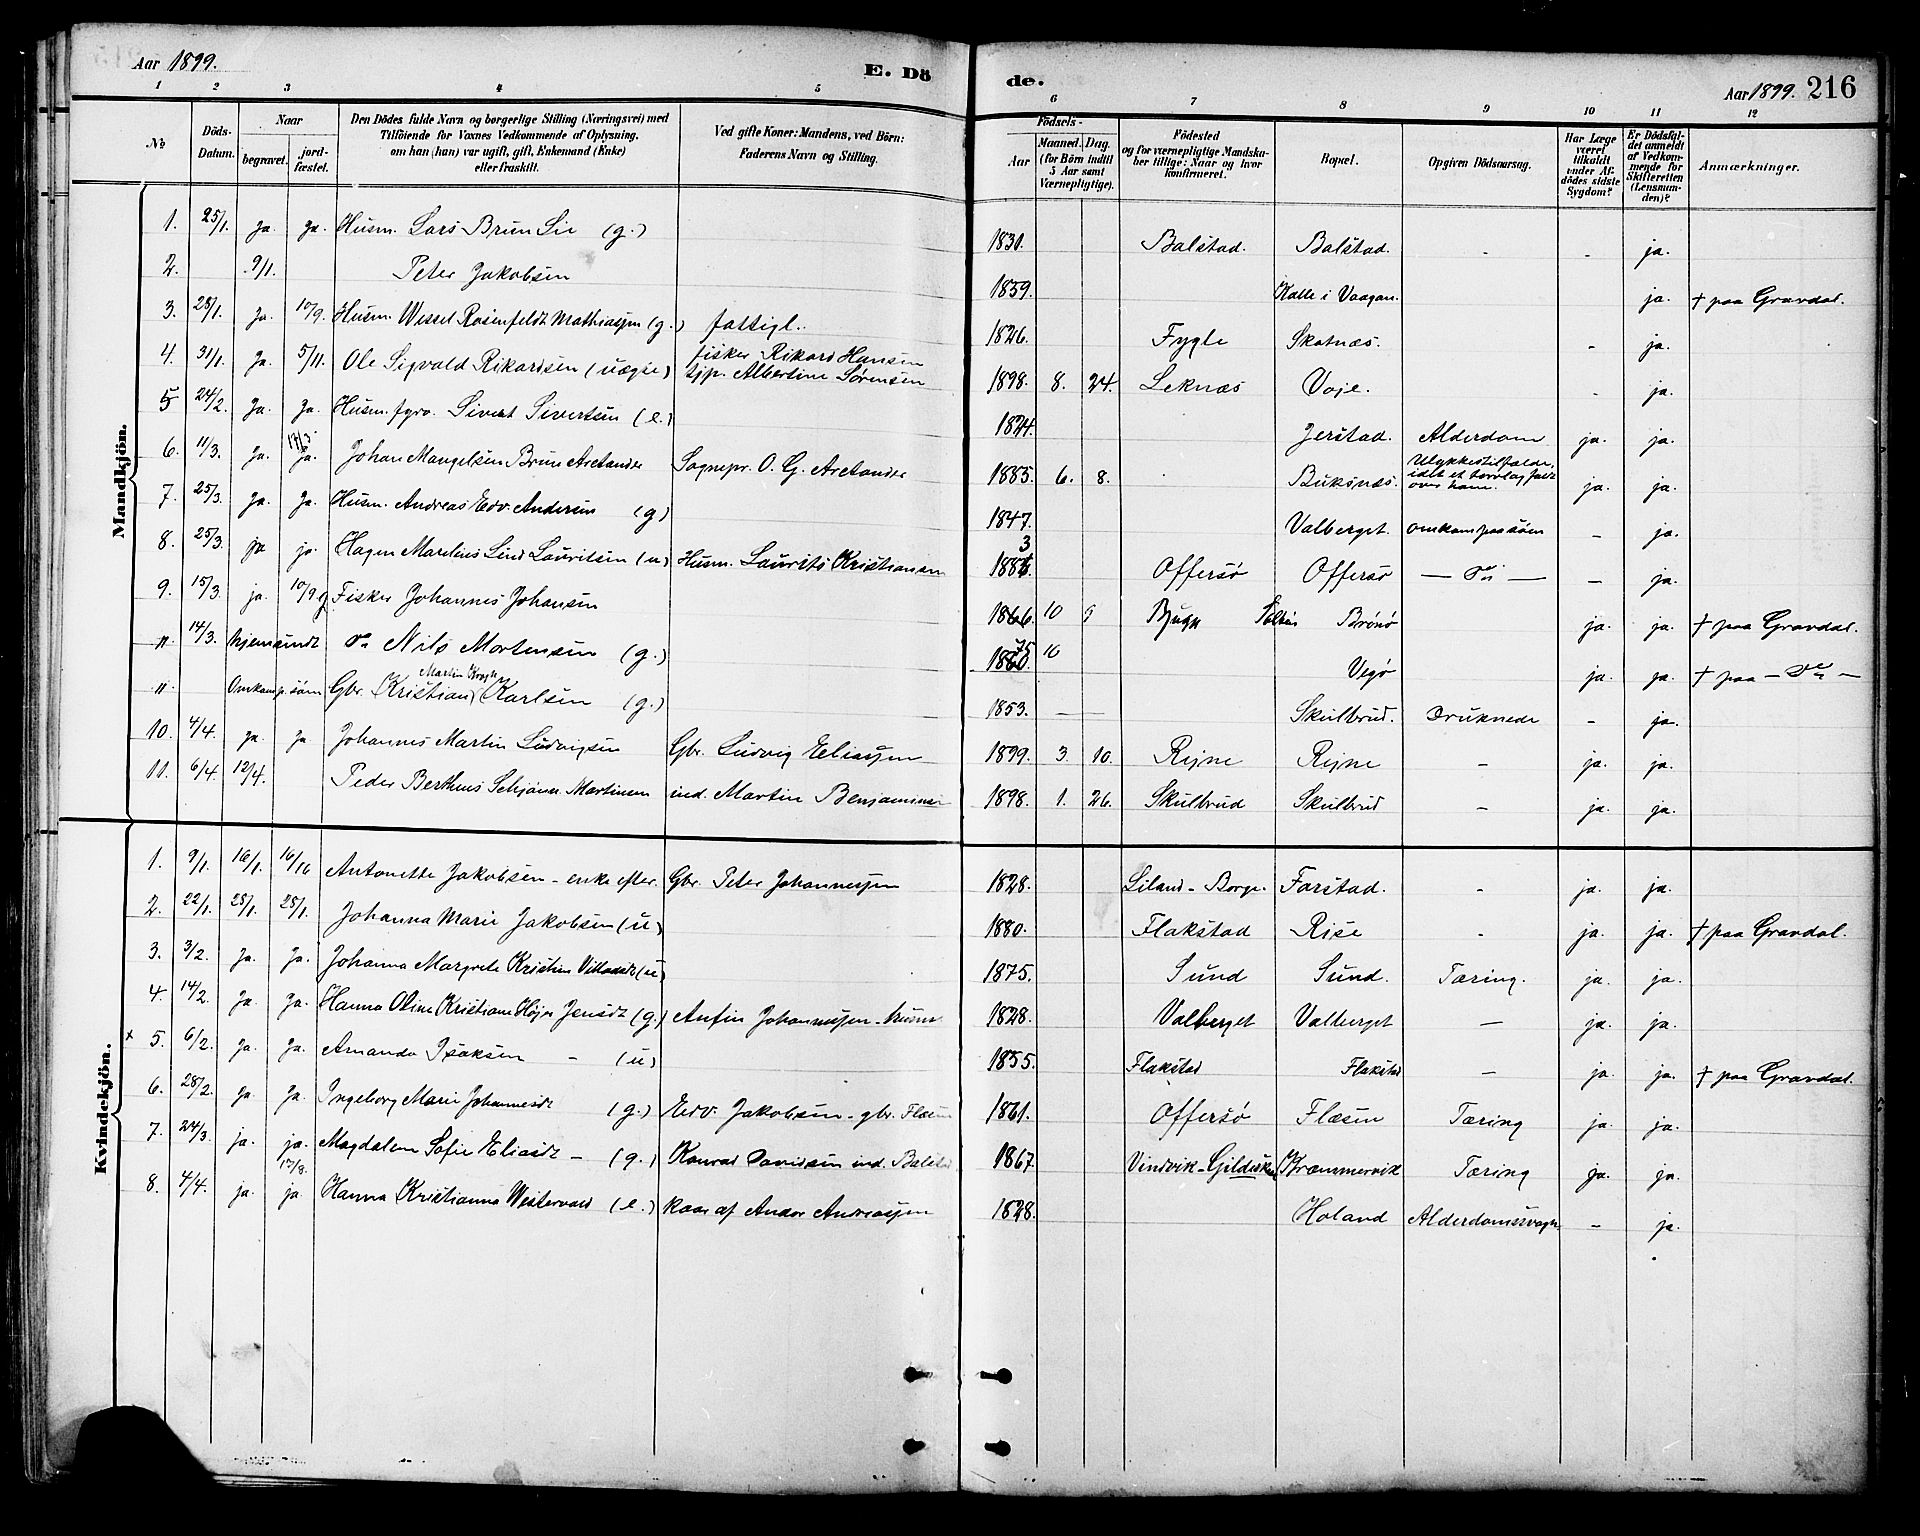 Aar 1899.
E. Dö
de.
Aar 1899. 216
1 2 3 4 5 6 7 8 9 10 11 12
No
Döds-Datum.
Naar
begravet.
jordfæstet.
Den Dödes fulde Navn og borgerlige Stilling (Næringsvei) med
Tilföiende for Voxnes Vedkommende af Oplysning,
om han (hun) var ugift, gift, Enkemand (Enke)
eller fraskilt.
Ved gifte Koner: Mandens, ved Börn:
Faderens Navn og Stilling.
Födsels-
Aar
Maaned. Dag.
(for Börn indtil
5 Aar samt
Værnepligtige).
Födested
og for værnepligtige Mandska-
ber tillige: Naar og hvor
konfirmeret.
Bopæl.
Opgiven Dödsaarsag.
Har Læge
været
tilkaldt
under Af-
dödes sidste
Sygdom?
Er Dödsfal-
det anmeldt
af Vedkom-
mende for
Skifteretten
(Lensman-
den)?
Anmærkninger.
Mandkjön.
1. 25/1. ja. ja. Husm. Lars Brun Lie (g.) 1831. Balstad. Balstad. - - ja.
2. 9/1. Peter Jakobsen 1859. Kalle i Vaagan. ja. † paa Gravdal.
3. 28/1. ja. 10/9. Husm. Wessel Rosenfeldt Mathiassen (g.) fattigl. 1826. Fygle Skotnæs. - ja.
4. 31/1. ja. 5/11. Ole Sigvald Rikardsen (uægte) fisker Rikard Hansen
tjp. Albertine Sørensen 1898. 8. 24. Leknæs Voje. - ja.
5 24/2. ja. ja. Husm. Sivert Sivertsen (e.) 1824. Jerstad. Alderdom ja. ja.
6. 11/3. ja. 17/3. ja. Johan Mangelsen Brun Arctander Sognepr. O. G. Arctander 1885. 6. 8. Buksnæs. Ulykkestilfælde,
idet et faldt
over ham. ja. ja.
7. 25/3. ja. ja. Husm. Andreas Edv. Andersen (g) 1847. Valberget. omkom paa søen - ja.
8. 25/3. ja jo. Hagen Marelius Lind Lauritsen (u) Husm. Laurits Kristiansen 3 188 Offersø Offersø — do — - ja.
9. 15/3. ja. 10/9. g Fisker Johannes Johansen 1866 10 9 Bjugn Brønø ja. ja. † paa Gravdal.
" 14/3. hjemsendt do Nils Mortensen (g.) 75 1860. 10 Vegø ja. ja. † paa — do —
" Omkom p. søen Gbr. Kristian Martin Karlsen (g.) 1853. — — Skulbrud. Druknede - ja.
10. 4/4. ja. ja Johannes Martin Ludvigsen Gbr. Ludvig Eliassen 1899. 3. 10. Rijne Rijne - ja. ja.
11. 6/4. 12/4. Peder Bertheus Schjøner Martinsen ind. Martin Benjaminsen 1898. 1. 26. Skulbrud Skulbrud - ja. ja.
Kvindekjön.
1. 9/1. 16/1. 16/16 Antonette Jakobsen - enke efter Gbr. Peter Johannessen 1828. Liland - Borge. Farstad. - ja. ja.
2. 22/1. 28/1. 28/1. Johanna Marie Jakobsen (u) 1880. Flakstad Rise - ja. ja. † paa Gravdal.
3. 3/2. ja. ja. Johanna Margrete Kristine (u) 1875. Sund Sund. Tæring. ja. ja.
4. 14/2. ja. ja. Hanna Oline Kristiane Højer Jensdt (g.) Anfin Johannessen - husm 1828. Valberget Valberget — ja. ja.
x 5. 6/2. ja. ja. Amanda Isaksen - (u) 1855. Flakstad Flakstad — ja. ja. † paa Gravdal.
6. 28/2. ja. ja. Ingeborg Marie Johannesdt (g.) Edv. Jakobsen - gbr. Flæsen 1861. Offersø Flæsen Tæring ja. ja.
7. 24/3. ja. ja. Magdalene Sofie Eliasdt - (g.) Konrad Davidsen ind. Balstad 1867. Vindvik - Gildeskaal Kræmmervik Tæring ja. ja.
8. 4/4. ja. 17/8. ja. Hanna Kristianna Westervold (e.) kaar af Andor Andreassen 1828. Holand Alderdomssvagh. - ja.